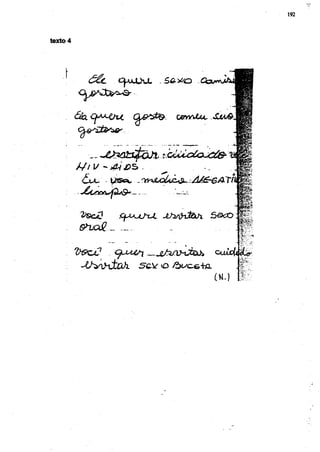 192
texto 4
Ele quer sexo
gostoso
Ela quer gosto comeu sua
gostosa
evitar cuidado
HIV - AIDS
Eu usa medica NEGATI
limpo
Você quer evitar sexo
oral
Você quer evitar cuidado
evitar sexo Buceta
(N.)